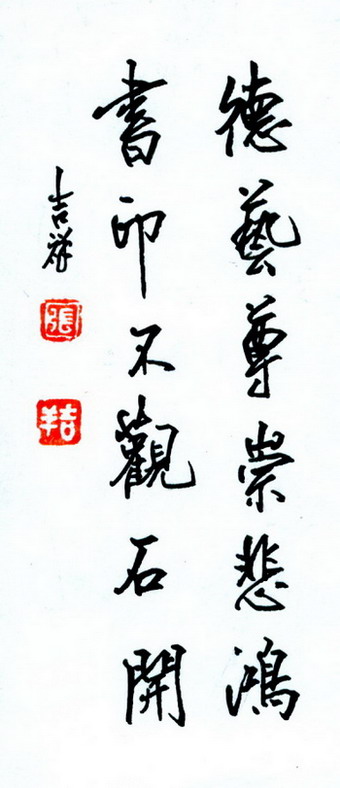 德藝尊崇悲鴻
書印不觀石開
吉祥
張
吉羊